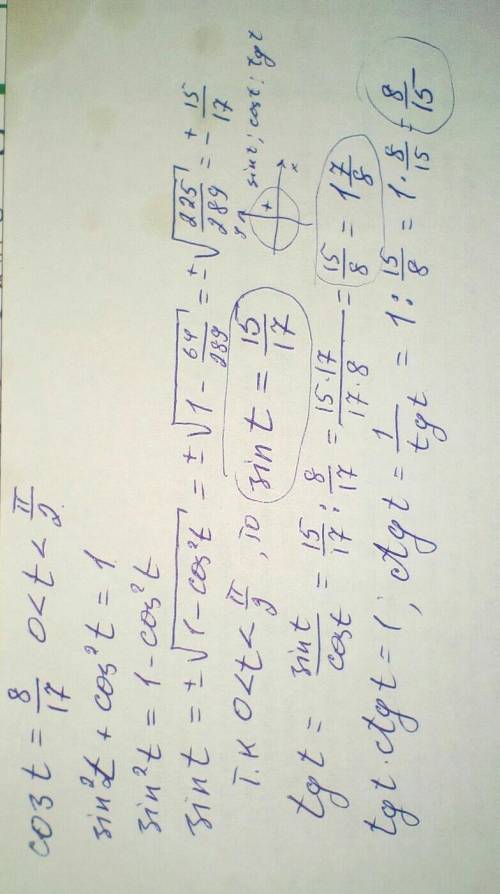 cos t = 8/17 0<t<π/2
sin²t + cos²t = 1
sin²t = 1 - cos²t
sin t = ±√(1 - cos²t) = ±√(1 - 64/289) = ±√(225/289) = ±15/17
Т.к 0<t<π/2, то sin t = 15/17
y x + sin t; cos t; tg t
tg t = sin t/cos t = 15/17 : 8/17 = 15·17/17·8 = 15/8 = 1 7/8
tg t · ctg t = 1; ctg t = 1/tg t = 1 : 15/8 = 1 · 8/15 = 8/15